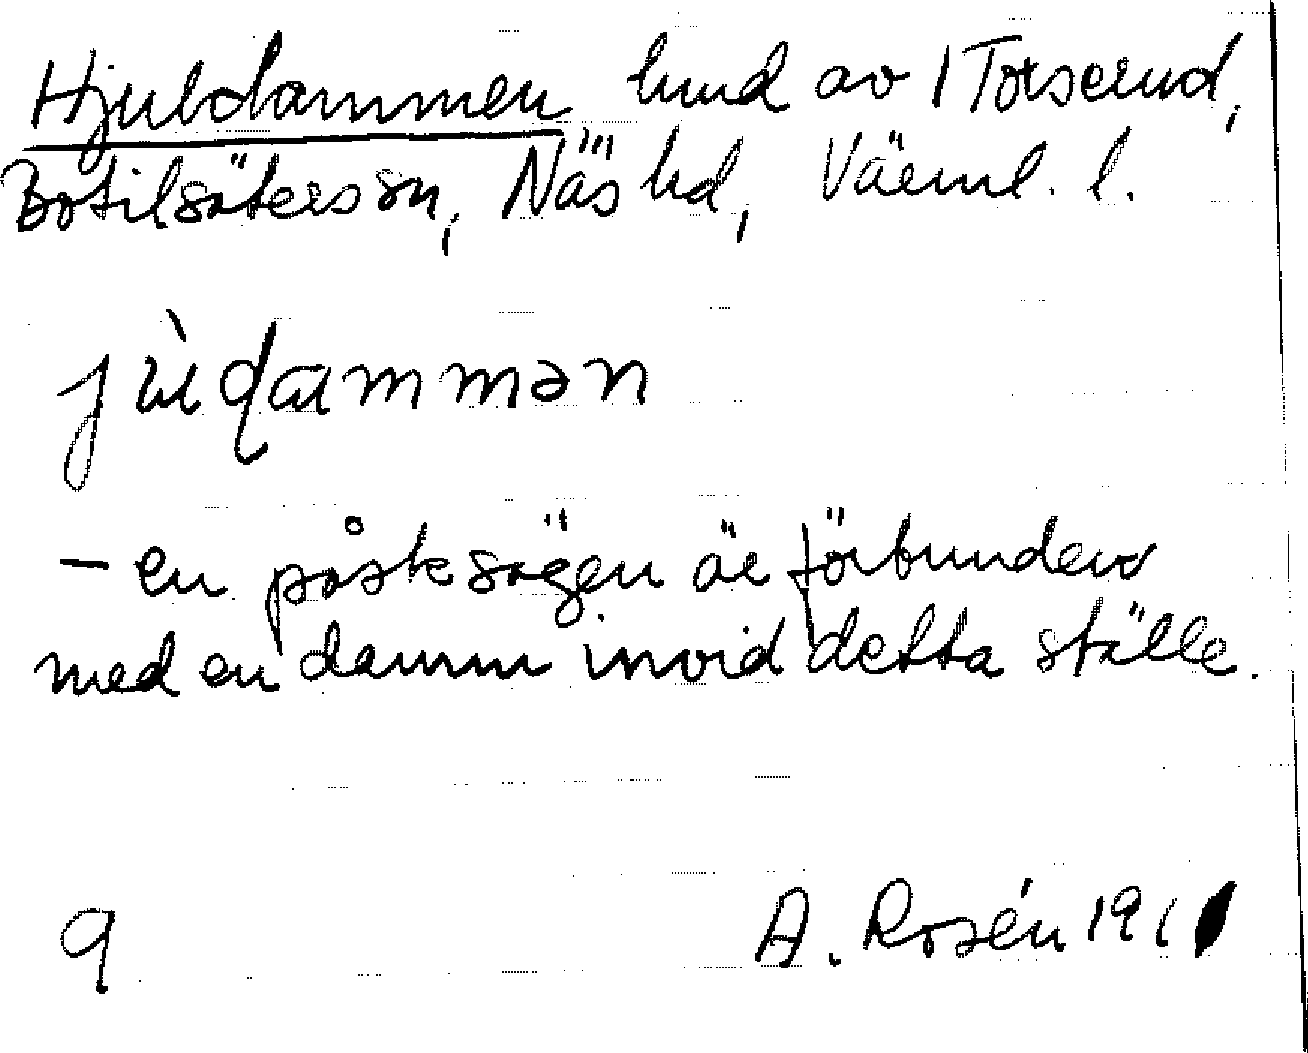 Hjuldammen hund av 1 Torserud,
Botilsäters sn, Näs hd, Värml. l.
jùɖammən
– en påsksägen är förbunden
med en damm invid detta ställe.
9 A. Rosén 1911